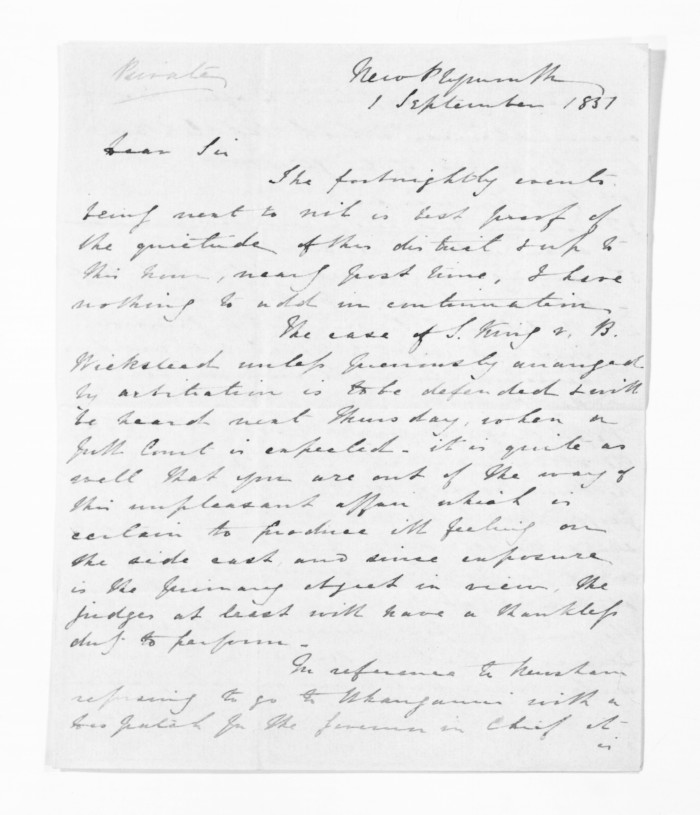 Private
New Plymouth
1 September 1851
Dear Sir
The fortnightly events
being next to nil is best proof of
the quietude of this district & up to
this hour, nearly post time, I have
nothing to add in continuation
The case of S. King v. B.
Wicksteed unless previously arranged
by arbitration is to be defended & will
be heard next Thursday, when a
full Court is expected - it is quite as
well that you are out of the way of
this unpleasant affair which is
certain to produce ill feeling on
the side cast, and since exposure
is the primary object in view, the
judges at least will have a thankless
duty to perform -
In reference to Newsham
refusing to go to Whanganui with a
despatch for the Governor in Chief it
is